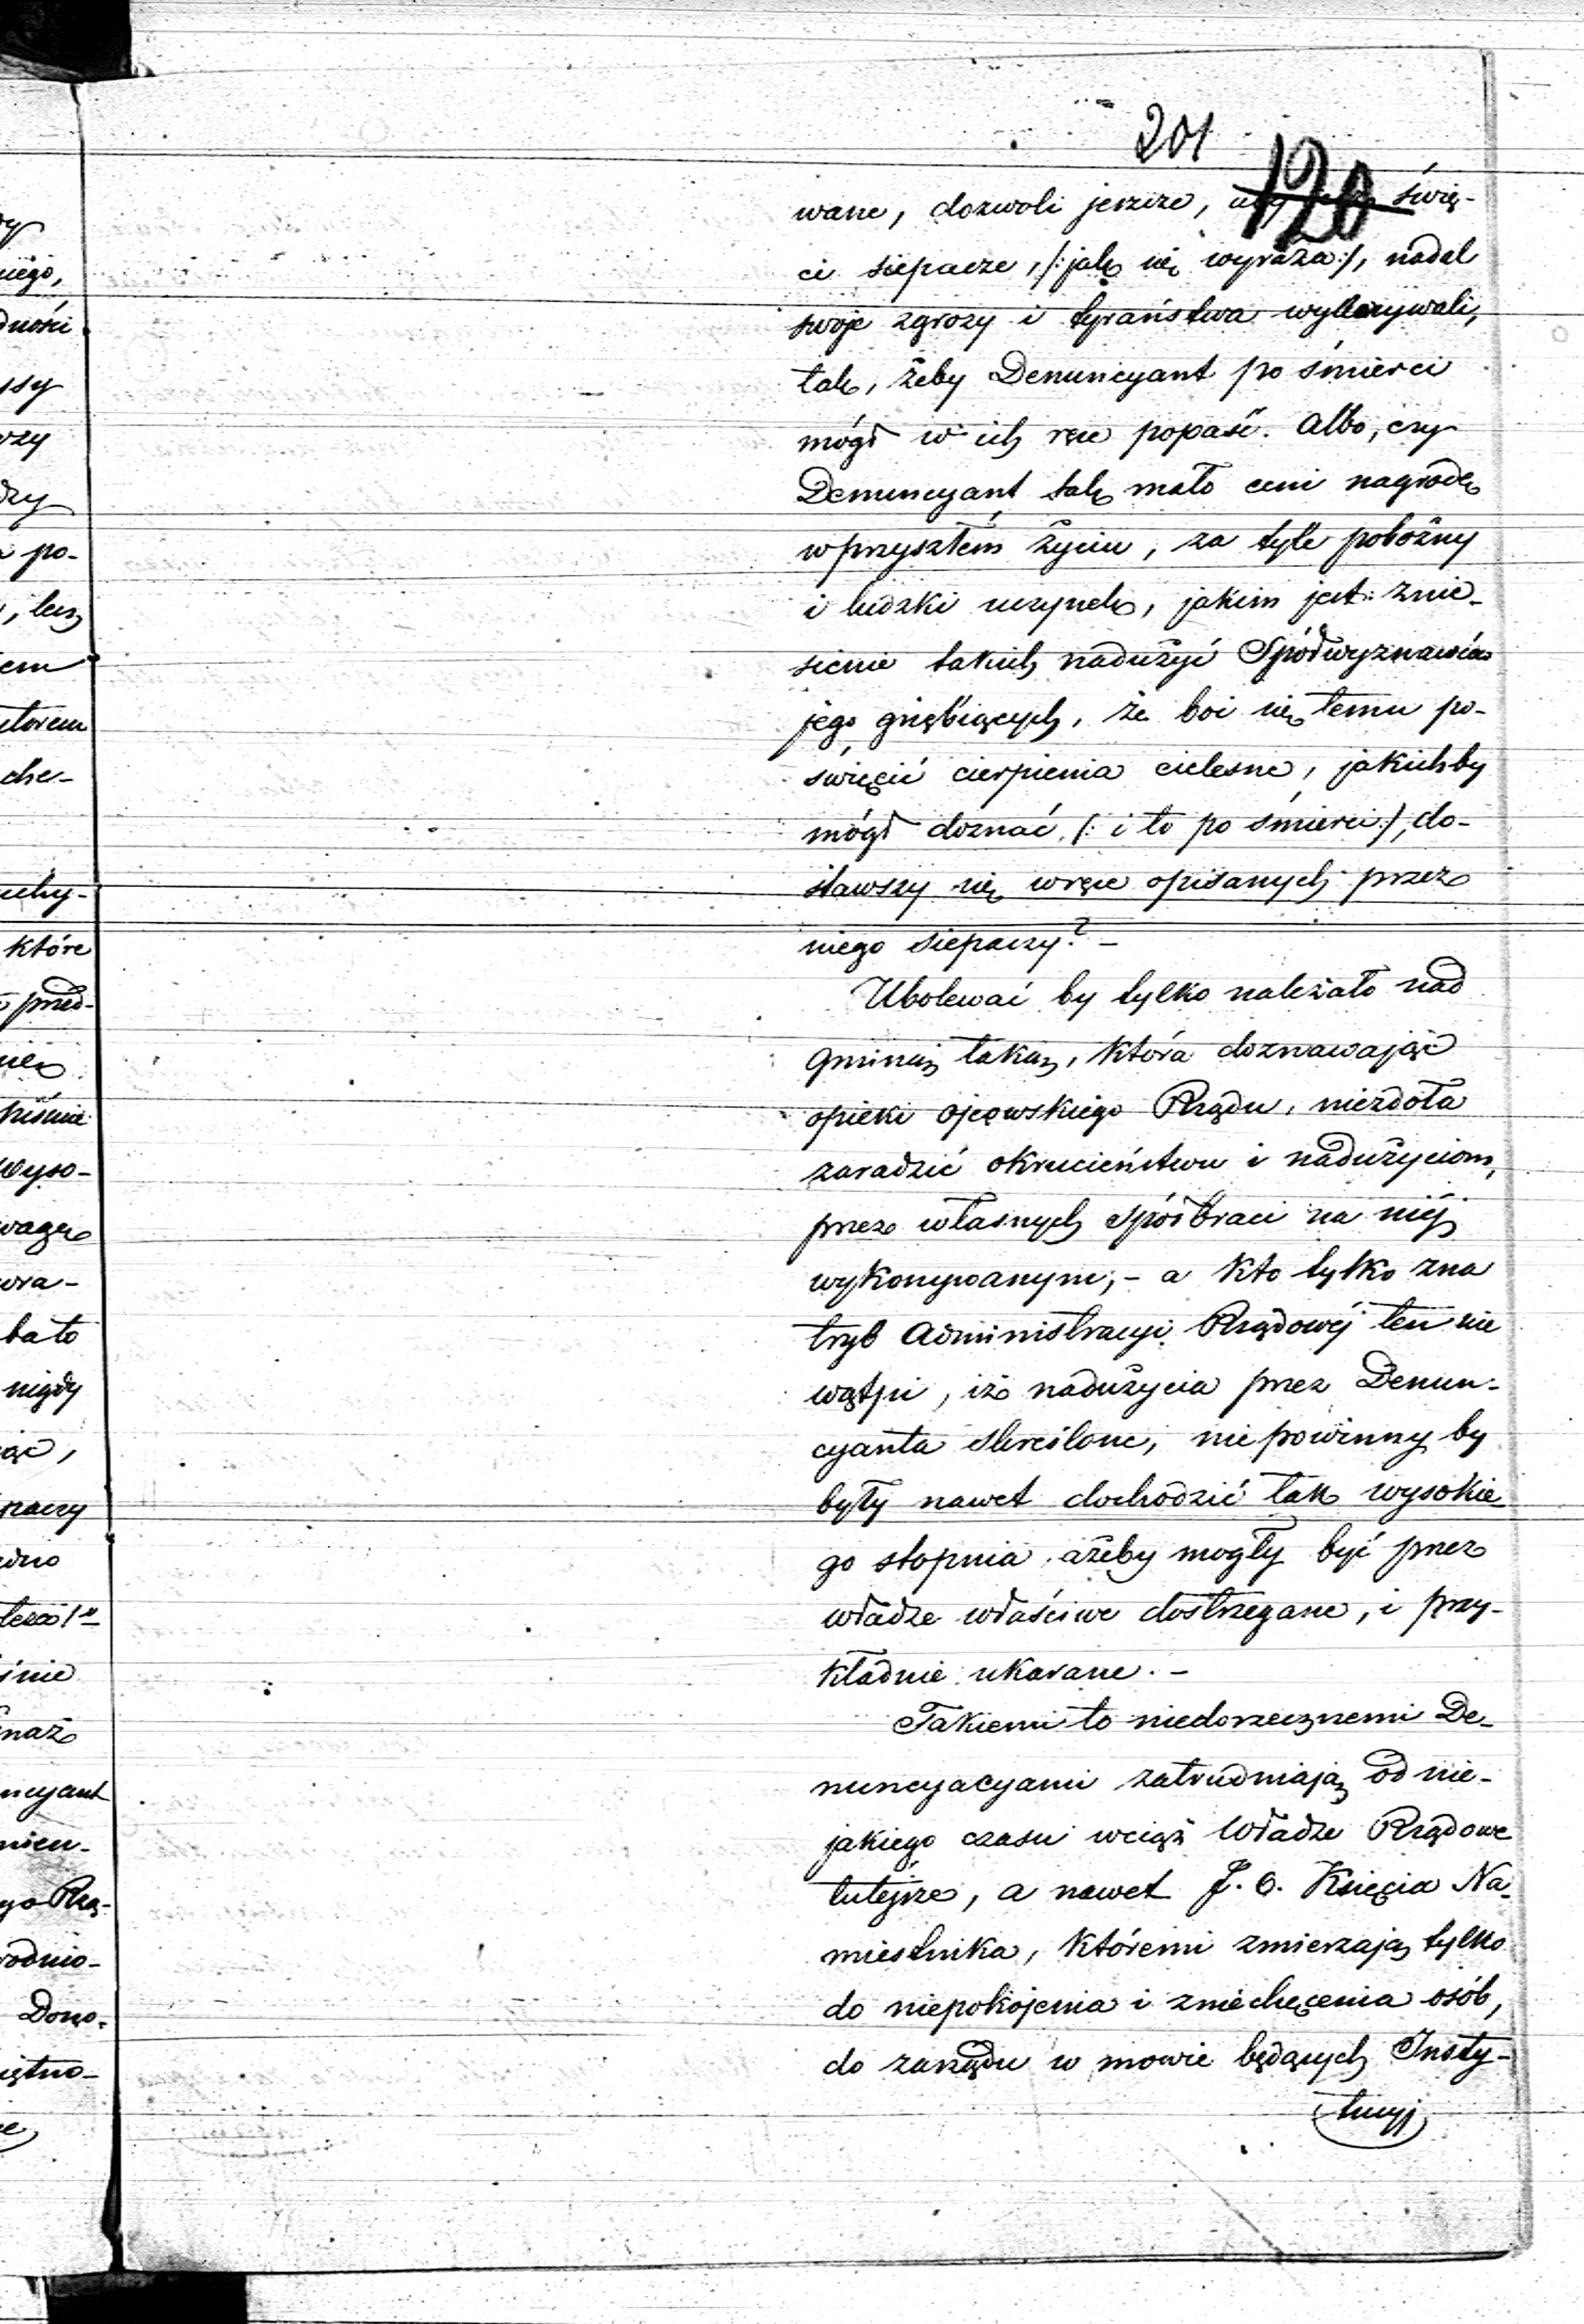 201
120
wane, dozwoli jeszcze, aby świę-
ci siepacze, /:jak się wyraża:/, nadal
swoje zgrozy i tyraństwa wykonywali,
tak, żeby Denuncyant po śmierci
mógł w ich ręce popaść. Albo, czy
Denuncyant tak mało ceni nagrodę
w przyszłém życiu, za tyle pobożny
i ludzki uczynek, jakim jest: znie-
sienie takich nadużyć Spółwyznawców
jego gnębiących, że boi się temu po-
święcić cierpienia cielesne, jakichby
mógł doznać /: i to po śmierci:/, do-
stawszy się w ręce opisanych przez
niego siepaczy? -
Ubolewać by tylko należało nad
Gminą taką, która doznawając
opieki ojcowskiego Rządu, niezdoła
zaradzić okrucieństwu i nadużyciom,
przez własnych spółbraci na niéj
wykonywanym; - a kto tylko zna
tryb Administracyi Rządowéj ten nie
wątpi, iż nadużycia przez Denun-
cyanta skreślone, nie powinny by
były nawet dochodzić tak wysokie-
go stopnia ażeby mogły być przez
władze właściwe dostrzegane, i przy-
kładnie ukarane. -
Takiemi to niedorzecznemi De-
nuncyacyami zatrudniają od nie-
jakiego czasu wciąż Władze Rządowe
tutéjsze, a nawet J. O. Księcia Na-
miestnika, któremi zmierzają tylko
do niepokojenia i zniechęcenia osób,
do zarządu w mowie będących Insty-
tucyj
niego,
ssy
dzy
po-
, lecz
che-
które
przed-
piśmie
Wyso-
wagę
ba to
nigdy
ncyant
go Rzą-
Dono-